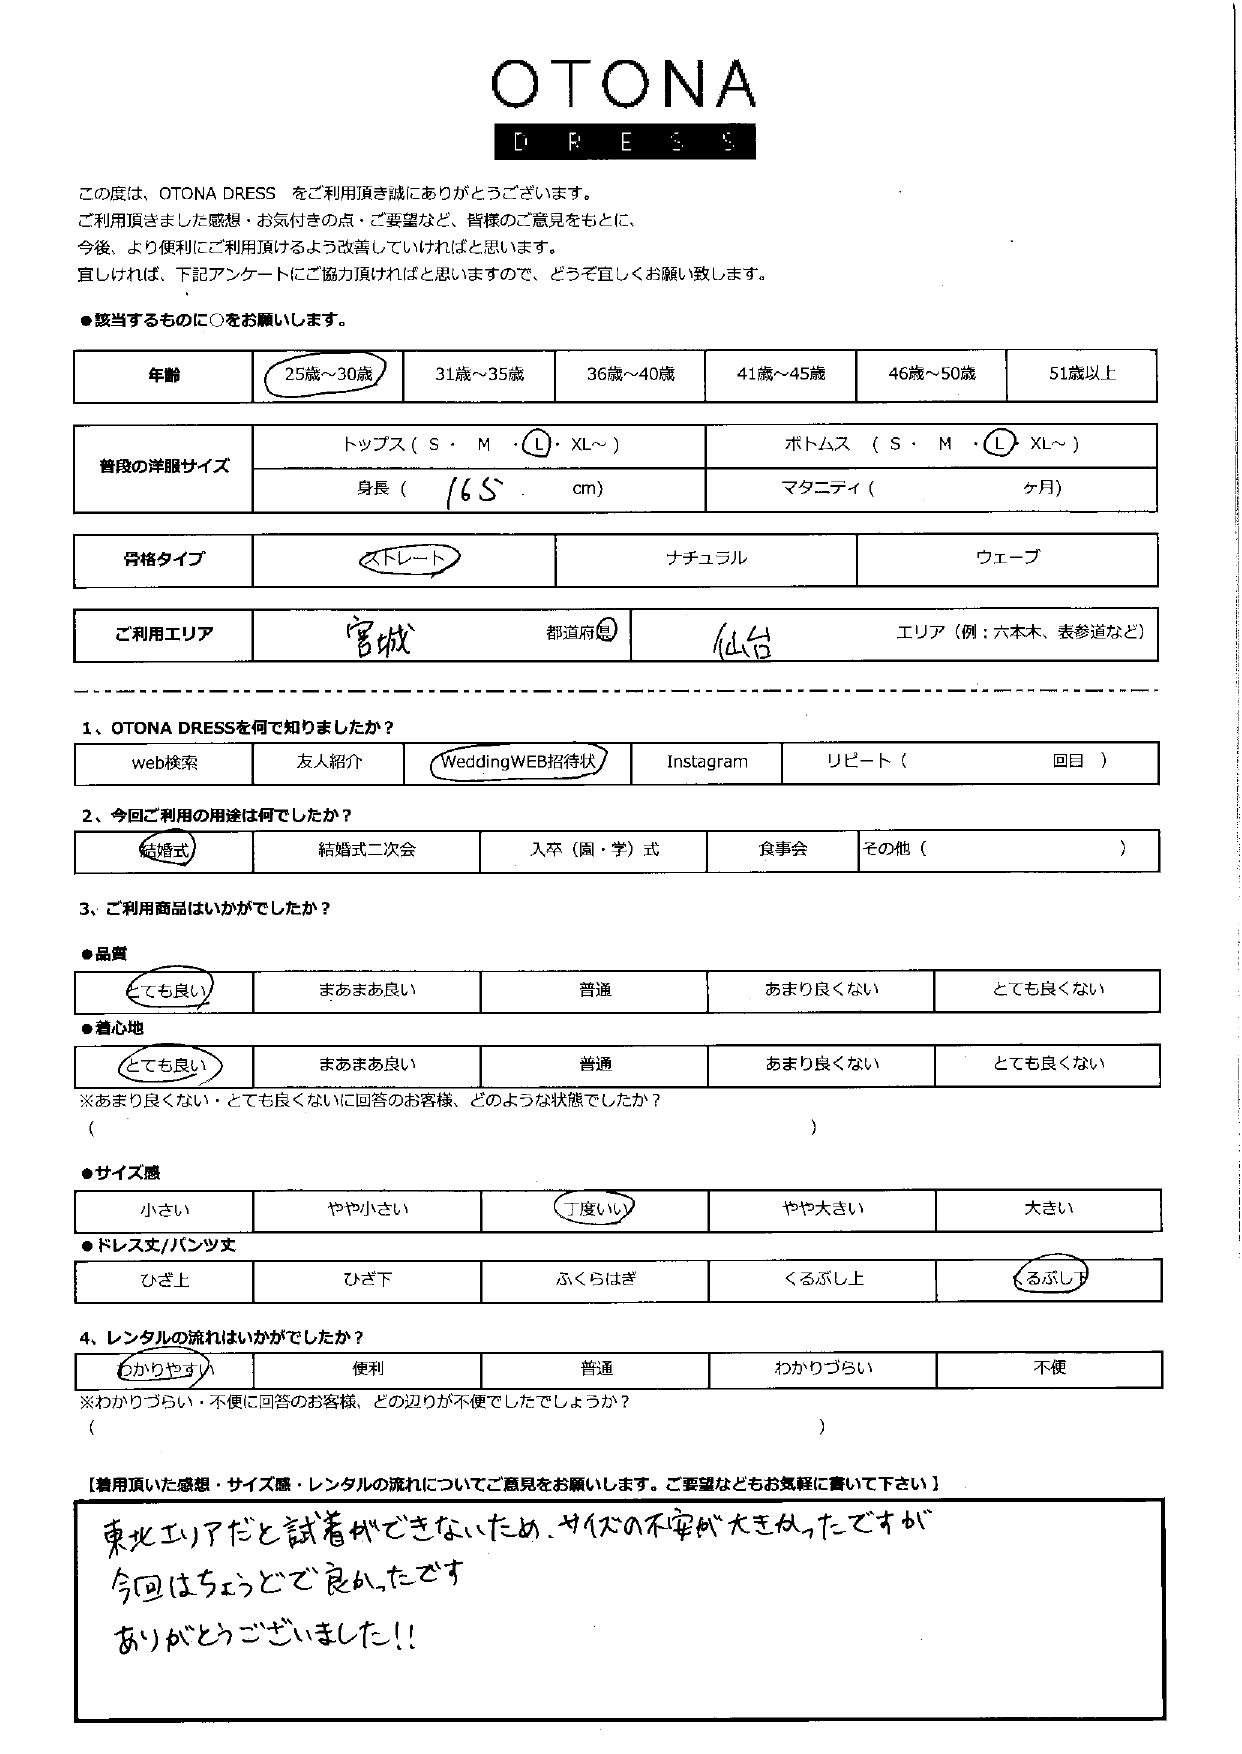 OTONA
DRESS
この度は、OTONA DRESS　をご利用頂き誠にありがとうございます。
ご利用頂きました感想・お気付きの点・ご要望など、皆様のご意見をもとに、
今後、より便利にご利用頂けるよう改善していければと思います。
宜しければ、下記アンケートにご協力頂ければと思いますので、どうぞ宜しくお願い致します。
●該当するものに○をお願いします。
年齢 25歳～30歳 31歳～35歳 36歳～40歳 41歳～45歳 46歳～50歳 51歳以上
普段の洋服サイズ トップス ( S ・ M ・ L ・ XL～ ) ボトムス ( S ・ M ・ L ・ XL～ )
身長 ( 165 cm) マタニティ ( ヶ月)
骨格タイプ ストレート ナチュラル ウェーブ
ご利用エリア 宮城 都道府県 仙台 エリア（例：六本木、表参道など）
1、OTONA DRESSを何で知りましたか？
web検索 友人紹介 WeddingWEB招待状 Instagram リピート（ 回目 ）
2、今回ご利用の用途は何でしたか？
結婚式 結婚式二次会 入卒（園・学）式 食事会 その他（ ）
3、ご利用商品はいかがでしたか？
●品質
とても良い まあまあ良い 普通 あまり良くない とても良くない
●着心地
とても良い まあまあ良い 普通 あまり良くない とても良くない
※あまり良くない・とても良くないに回答のお客様、どのような状態でしたか？
（ ）
●サイズ感
小さい やや小さい 丁度いい やや大きい 大きい
●ドレス丈/パンツ丈
ひざ上 ひざ下 ふくらはぎ くるぶし上 くるぶし下
4、レンタルの流れはいかがでしたか？
わかりやすい 便利 普通 わかりづらい 不便
※わかりづらい・不便に回答のお客様、どの辺りが不便でしたでしょうか？
（ ）
【着用頂いた感想・サイズ感・レンタルの流れについてご意見をお願いします。ご要望などもお気軽に書いて下さい】
東北エリアだと試着ができないため、サイズの不安が大きかったですが
今回はちょうどで良かったです
ありがとうございました!!